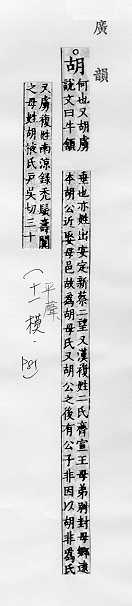 廣韻
胡
何也又胡虜
說文曰牛頷
垂也亦姓出安定新蔡二望又漢複姓二氏齊宣王母弟別封母鄉遠
本胡公近娶母邑故為胡母氏又胡公之後有公子非因以胡非為氏
又虜複姓南涼錄禿髮壽闐
之母姓胡掖氏戸吳切三十
(平聲
十一模.
P81)